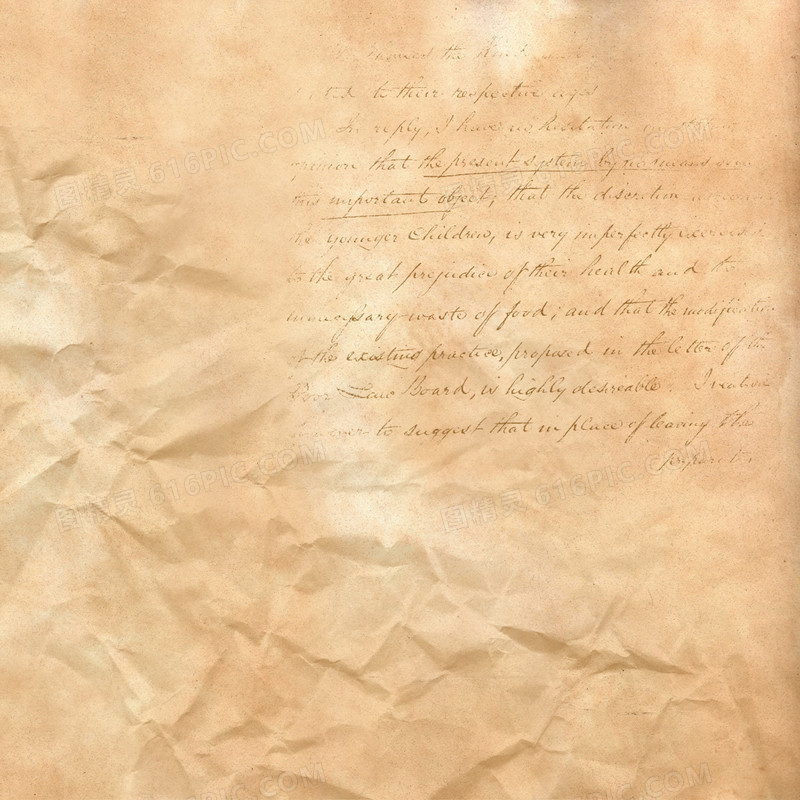 to their respective ages
In reply, I have no hesitation in
opinion that the present system by no means
this important object; that the discretion
the younger Children, is very imperfectly exercised
to the great prejudice of their health and to
unnecessary waste of food; and that the modification
the existing practice, proposed in the letter of the
Poor Law Board, is highly desireable. I venture
however to suggest that in place of leaving the
图精灵 616PIC.COM